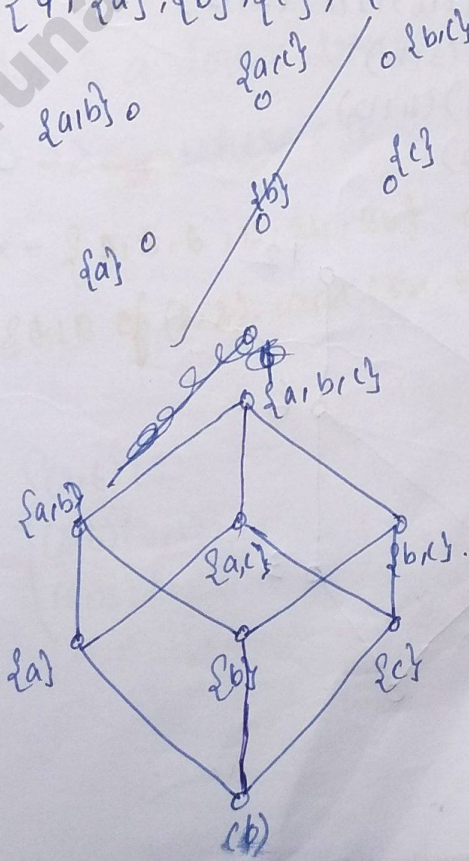 {a}, {b}, {c},
{a,c}
{b,c}
{a,b}
{c}
{b}
{a}
{a,b,c}
{a,b}
{a,c}
{b,c}.
{a}
{b}
{c}